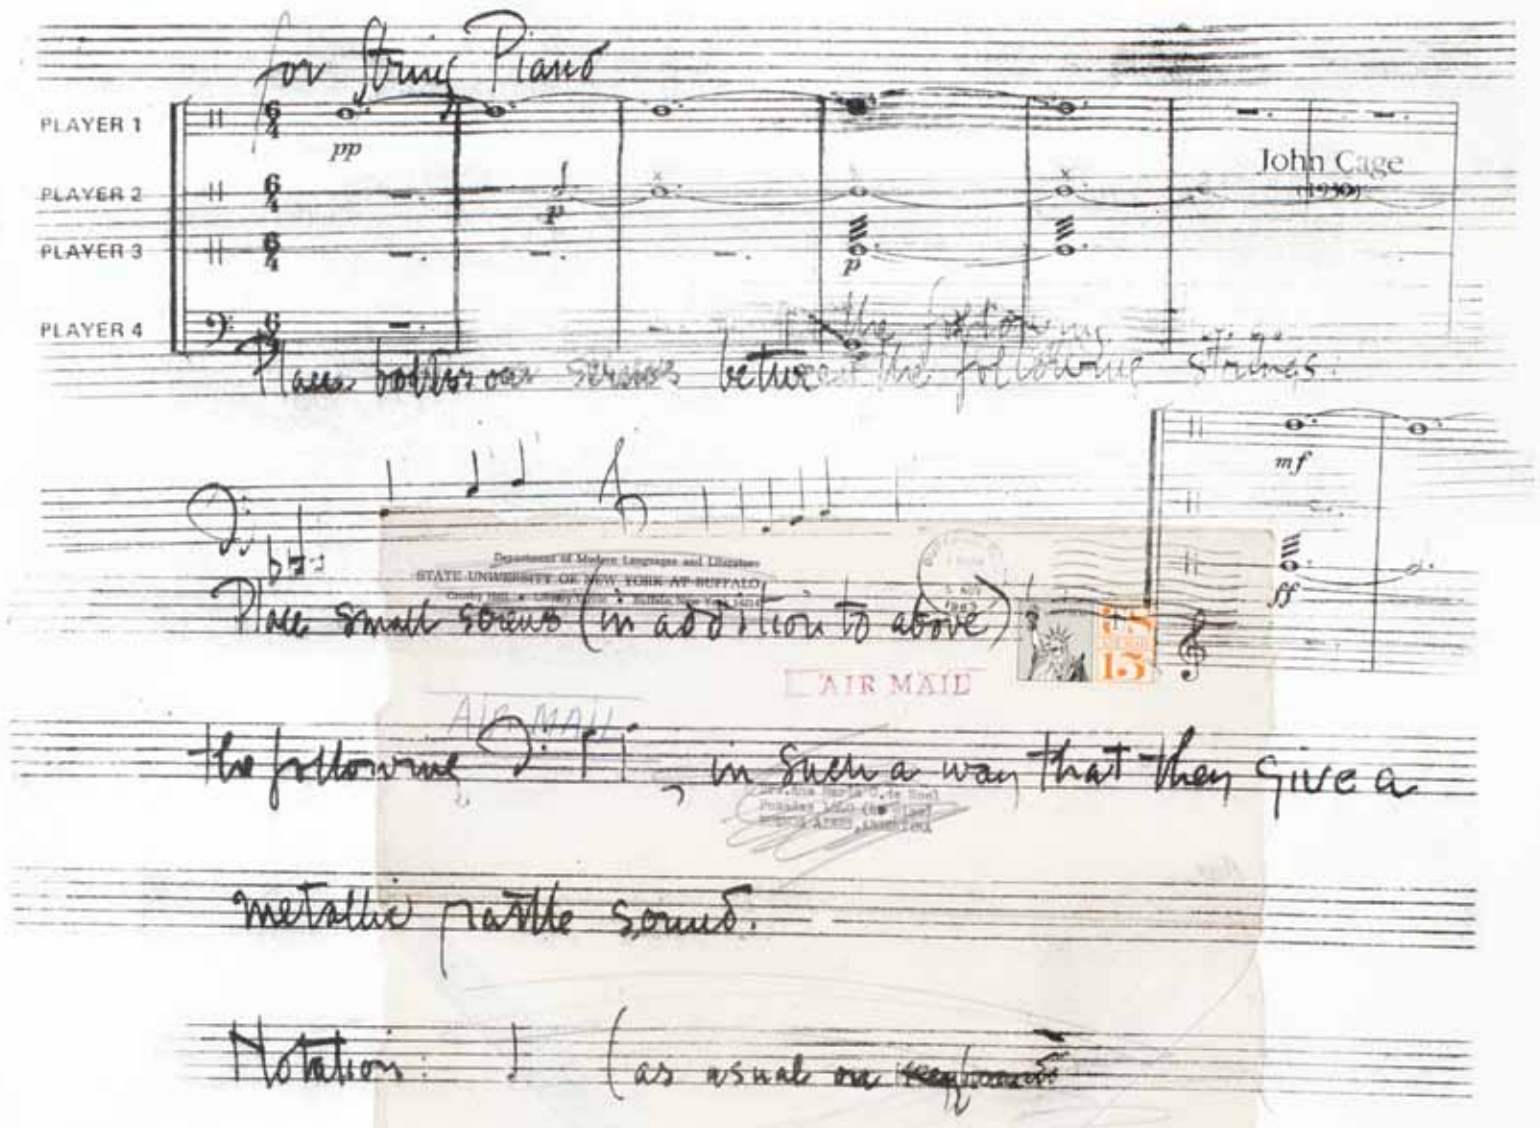 for String Piano
PLAYER 1
pp
John Cage
PLAYER 2
p
PLAYER 3
p
the following
PLAYER 4
Place between the following strings:
mf
Department of Modern Languages and Literature
STATE UNIVERSITY OF NEW YORK AT BUFFALO
ff
Place small screws (in addition to above)
15
AIR MAIL
AIR MAIL
the following in such a way that they give a
metallic rattle sound.
Notation: (as usual on keyboard